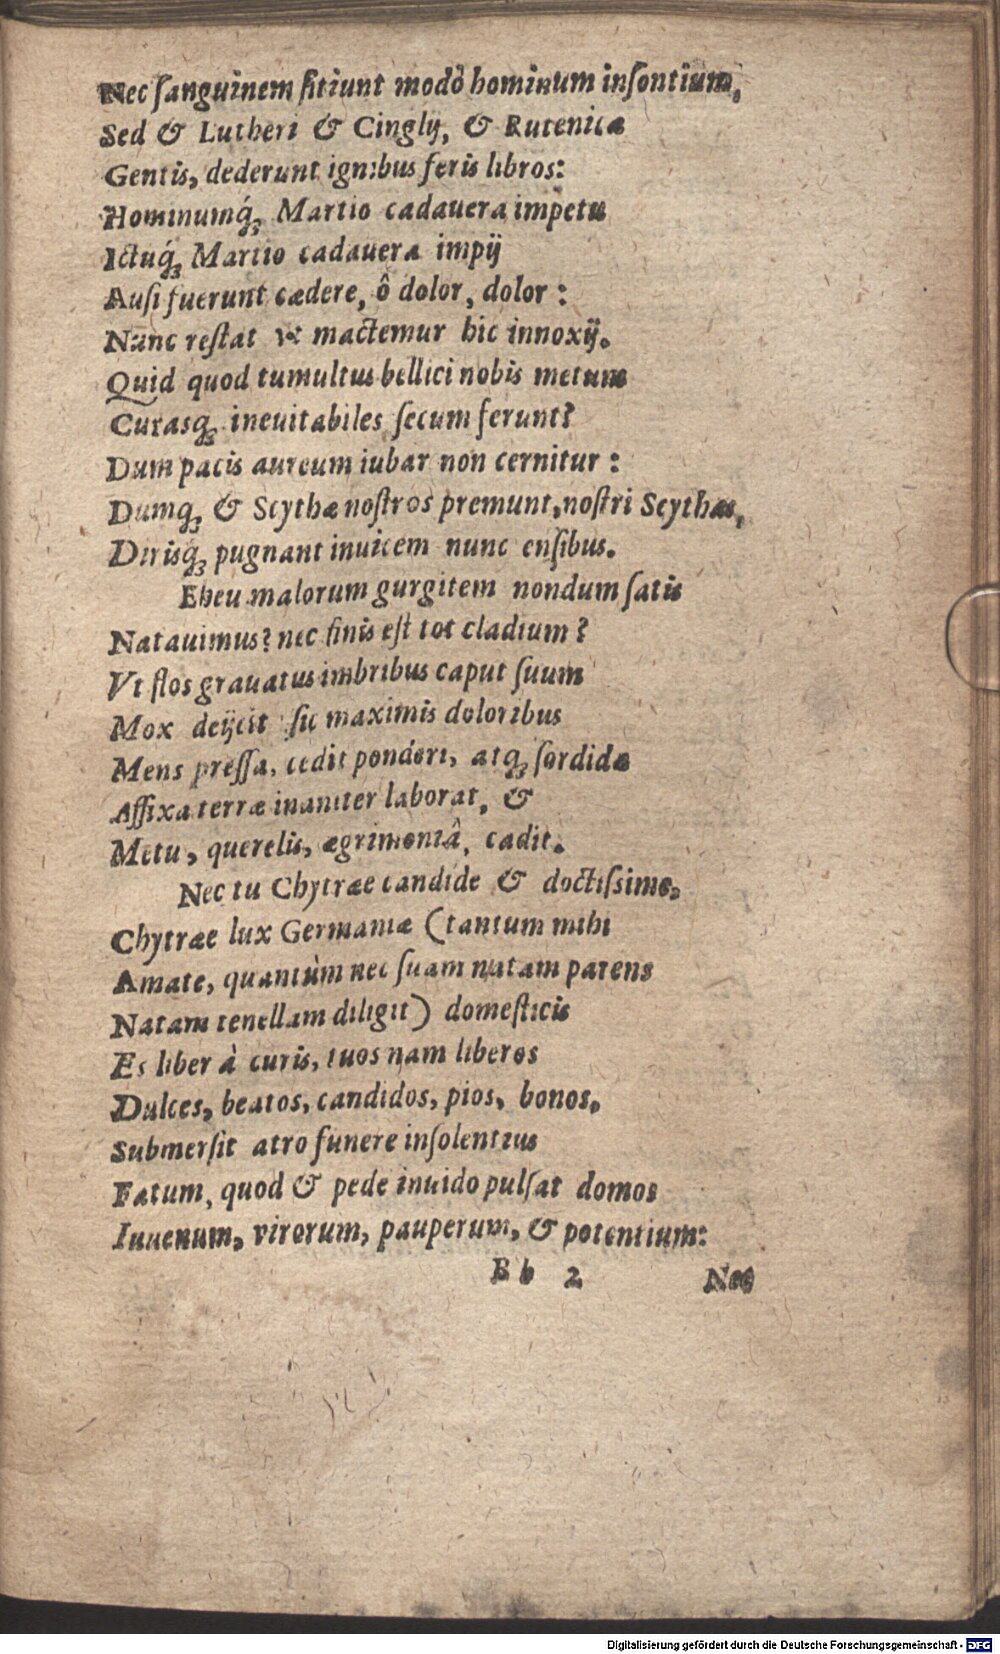 Nec ſanguinem ſitiunt modò hominum inſontium,
Sed & Lutheri & Cinglij, & Rutenicæ
Gentis, dederunt ignibus feris libros:
Hominumq́ꝫ Martio cadauera impetu
Ictuq́ꝫ Martio cadauera impij
Auſi fuerunt cædere, ô dolor, dolor:
Nunc reſtat vt mactemur hic innoxij.
Quid quod tumultus bellici nobis metum
Curasqꝫ ineuitabiles ſecum ferunt?
Dum pacis aureum iubar non cernitur:
Dumqꝫ & Scythæ noſtros premunt, noſtri Scythas,
Dirisq́ꝫ pugnant inuicem nunc enſibus.
Eheu malorum gurgitem nondum ſatis
Natauimus? nec finis eſt tot cladium?
Vt flos grauatus imbribus caput ſuum
Mox deijcit ſic maximis doloribus
Mens preſſa, cedit ponderi, atqꝫ ſordidæ
Affixa terræ inaniter laborat, &
Metu, querelis, ægrimoniâ, cadit.
Nec tu Chytræe candide & doctiſsime,
Chytræe lux Germaniæ (tantum mihi
Amate, quantùm nec ſuam natam parens
Natam tenellam diligit) domeſticis
Es liber à curis, tuos nam liberos
Dulces, beatos, candidos, pios, bonos,
Submerſit atro funere inſolentius
Fatum, quod & pede inuido pulſat domos
Iuuenum, virorum, pauperum, & potentium:
Bb 2 Nec
Digitalisierung gefördert durch die Deutsche Forschungsgemeinschaft - DFG